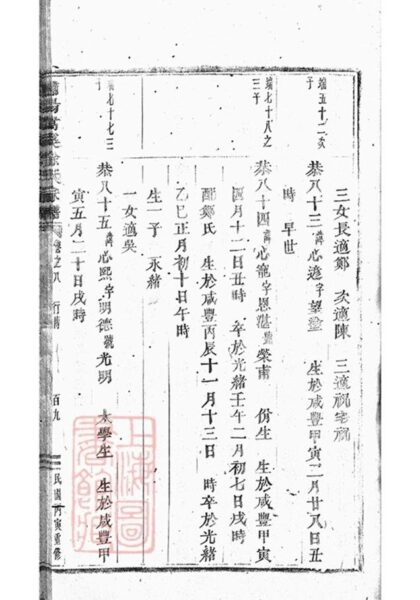 三女長適鄭 次適陳 三適祝宅祝
端五十二次子
恭八十三諱心適字望鑾 生於咸豐甲寅二月廿八日丑
時 早世
端七十八之三子
恭八十四諱心寵字恩湛號榮甫 佾生 生於咸豐甲寅
四月十二日丑時 卒於光緒壬午二月初七日戌時
配鄭氏 生於咸豐丙辰十一月十三日 時卒於光緒
乙巳正月初十日午時
生一子 永緒
一女適吳
端七十七三子
恭八十五諱心熙字明德號光明 太學生 生於咸豐甲
寅五月二十日戌時
卷之八 行傳 百九 民國丙寅重修
上海圖書館藏